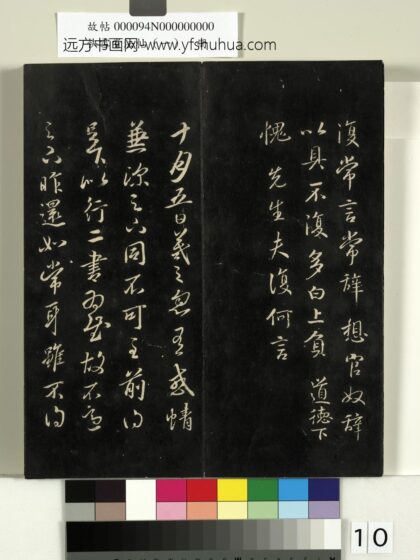 故帖 000094N000000000
远方书画网-www.yfshuhua.com
復常言常辭想官奴辭
以具不復多白上負道德下
愧先生夫復何言
十月五日羲之忽有感情
兼深之六同不可至前得
吴以行二書
之不昨還如常耳雖不得
10